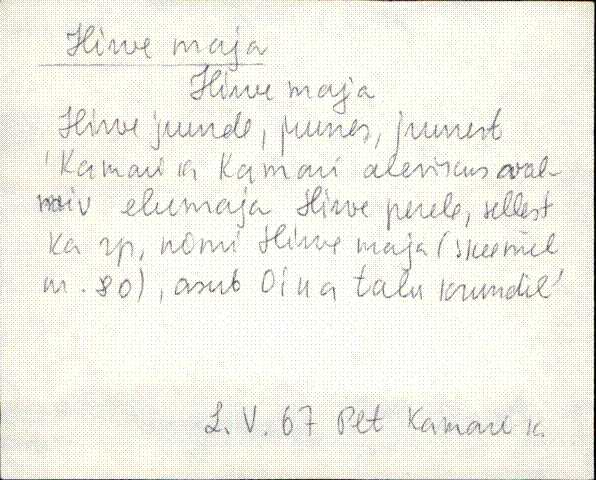 Hiirve maja
Hiirve maja
Hiirve juurde, juures, juurest
'Kamari k Kamari alevikus aval-
elumaja Hiirve perele, sellest
ka rp. nimi Hiirve maja (skeemil
nr. 80), asub Oina talu krundil'
L. V. 67 Plt Kamari k.